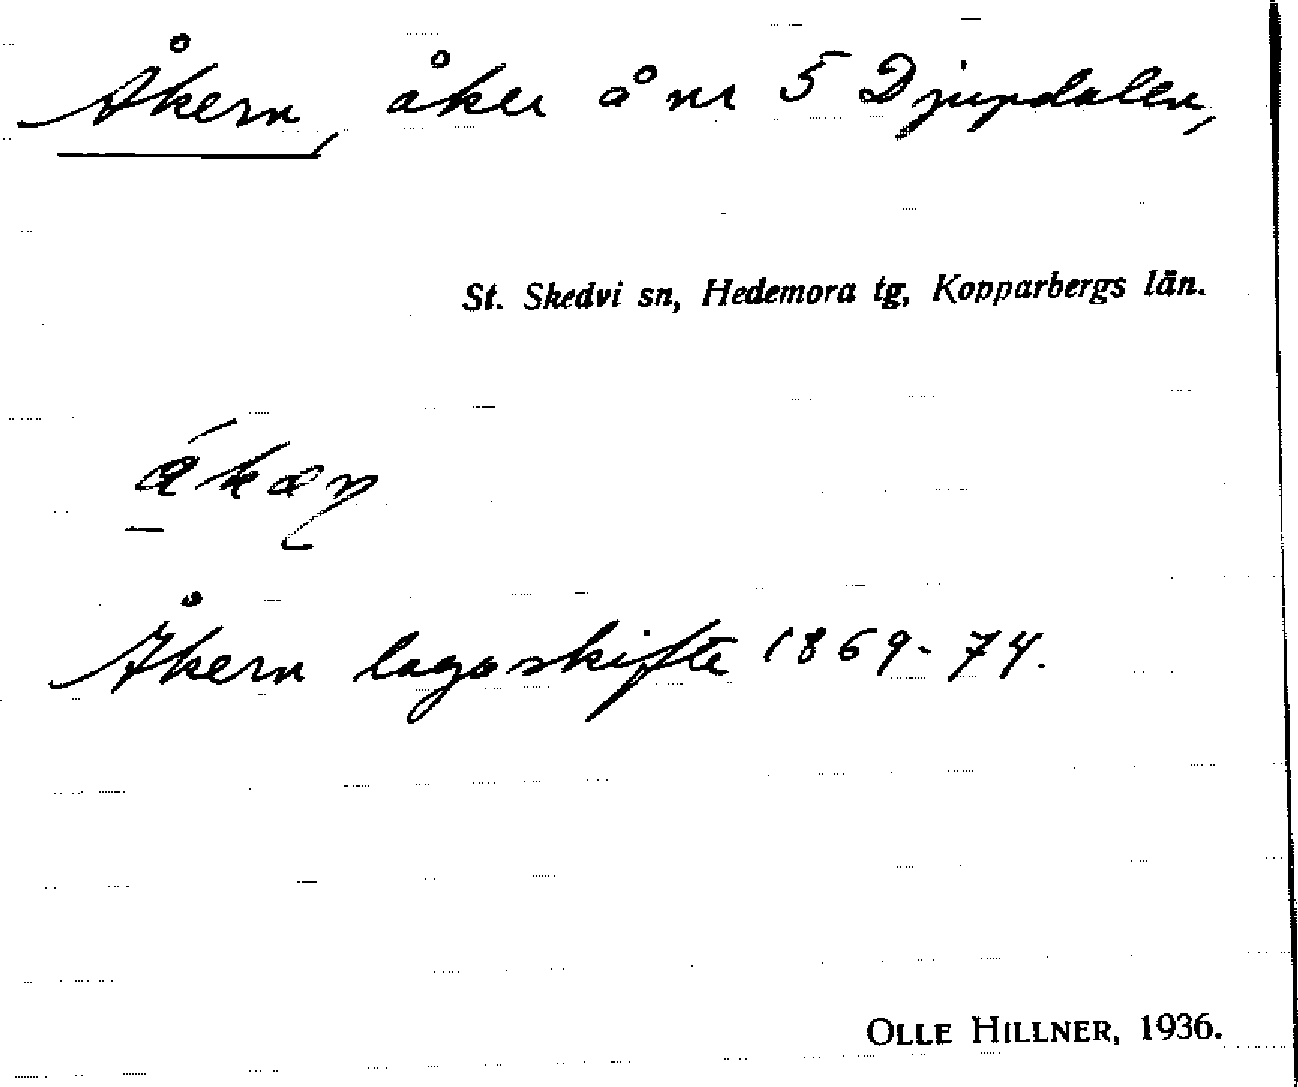 Åkern, åker å nr 5 Djupdalen,
St. Skedvi sn, Hedemora tg, Kopparbergs län.
Åkern lagaskifte 1869-74.
OLLE HILLNER, 1936.